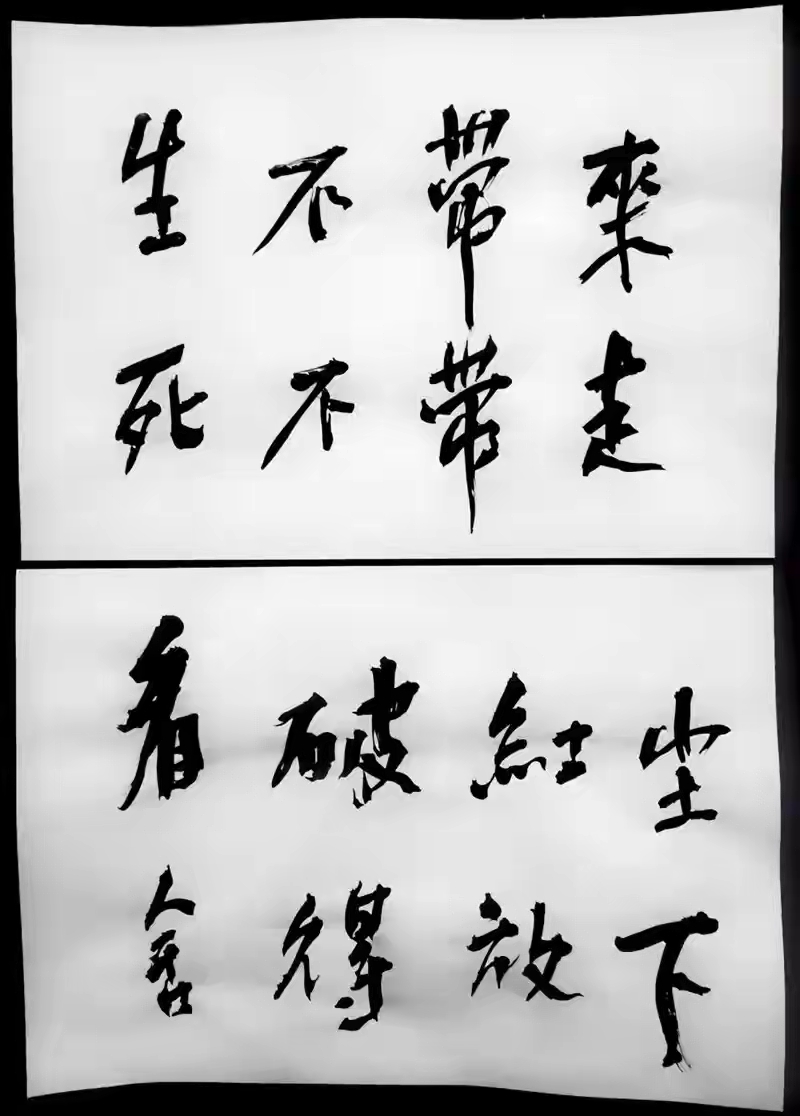 生不帶來
死不帶走
看破紅尘
舍得放下